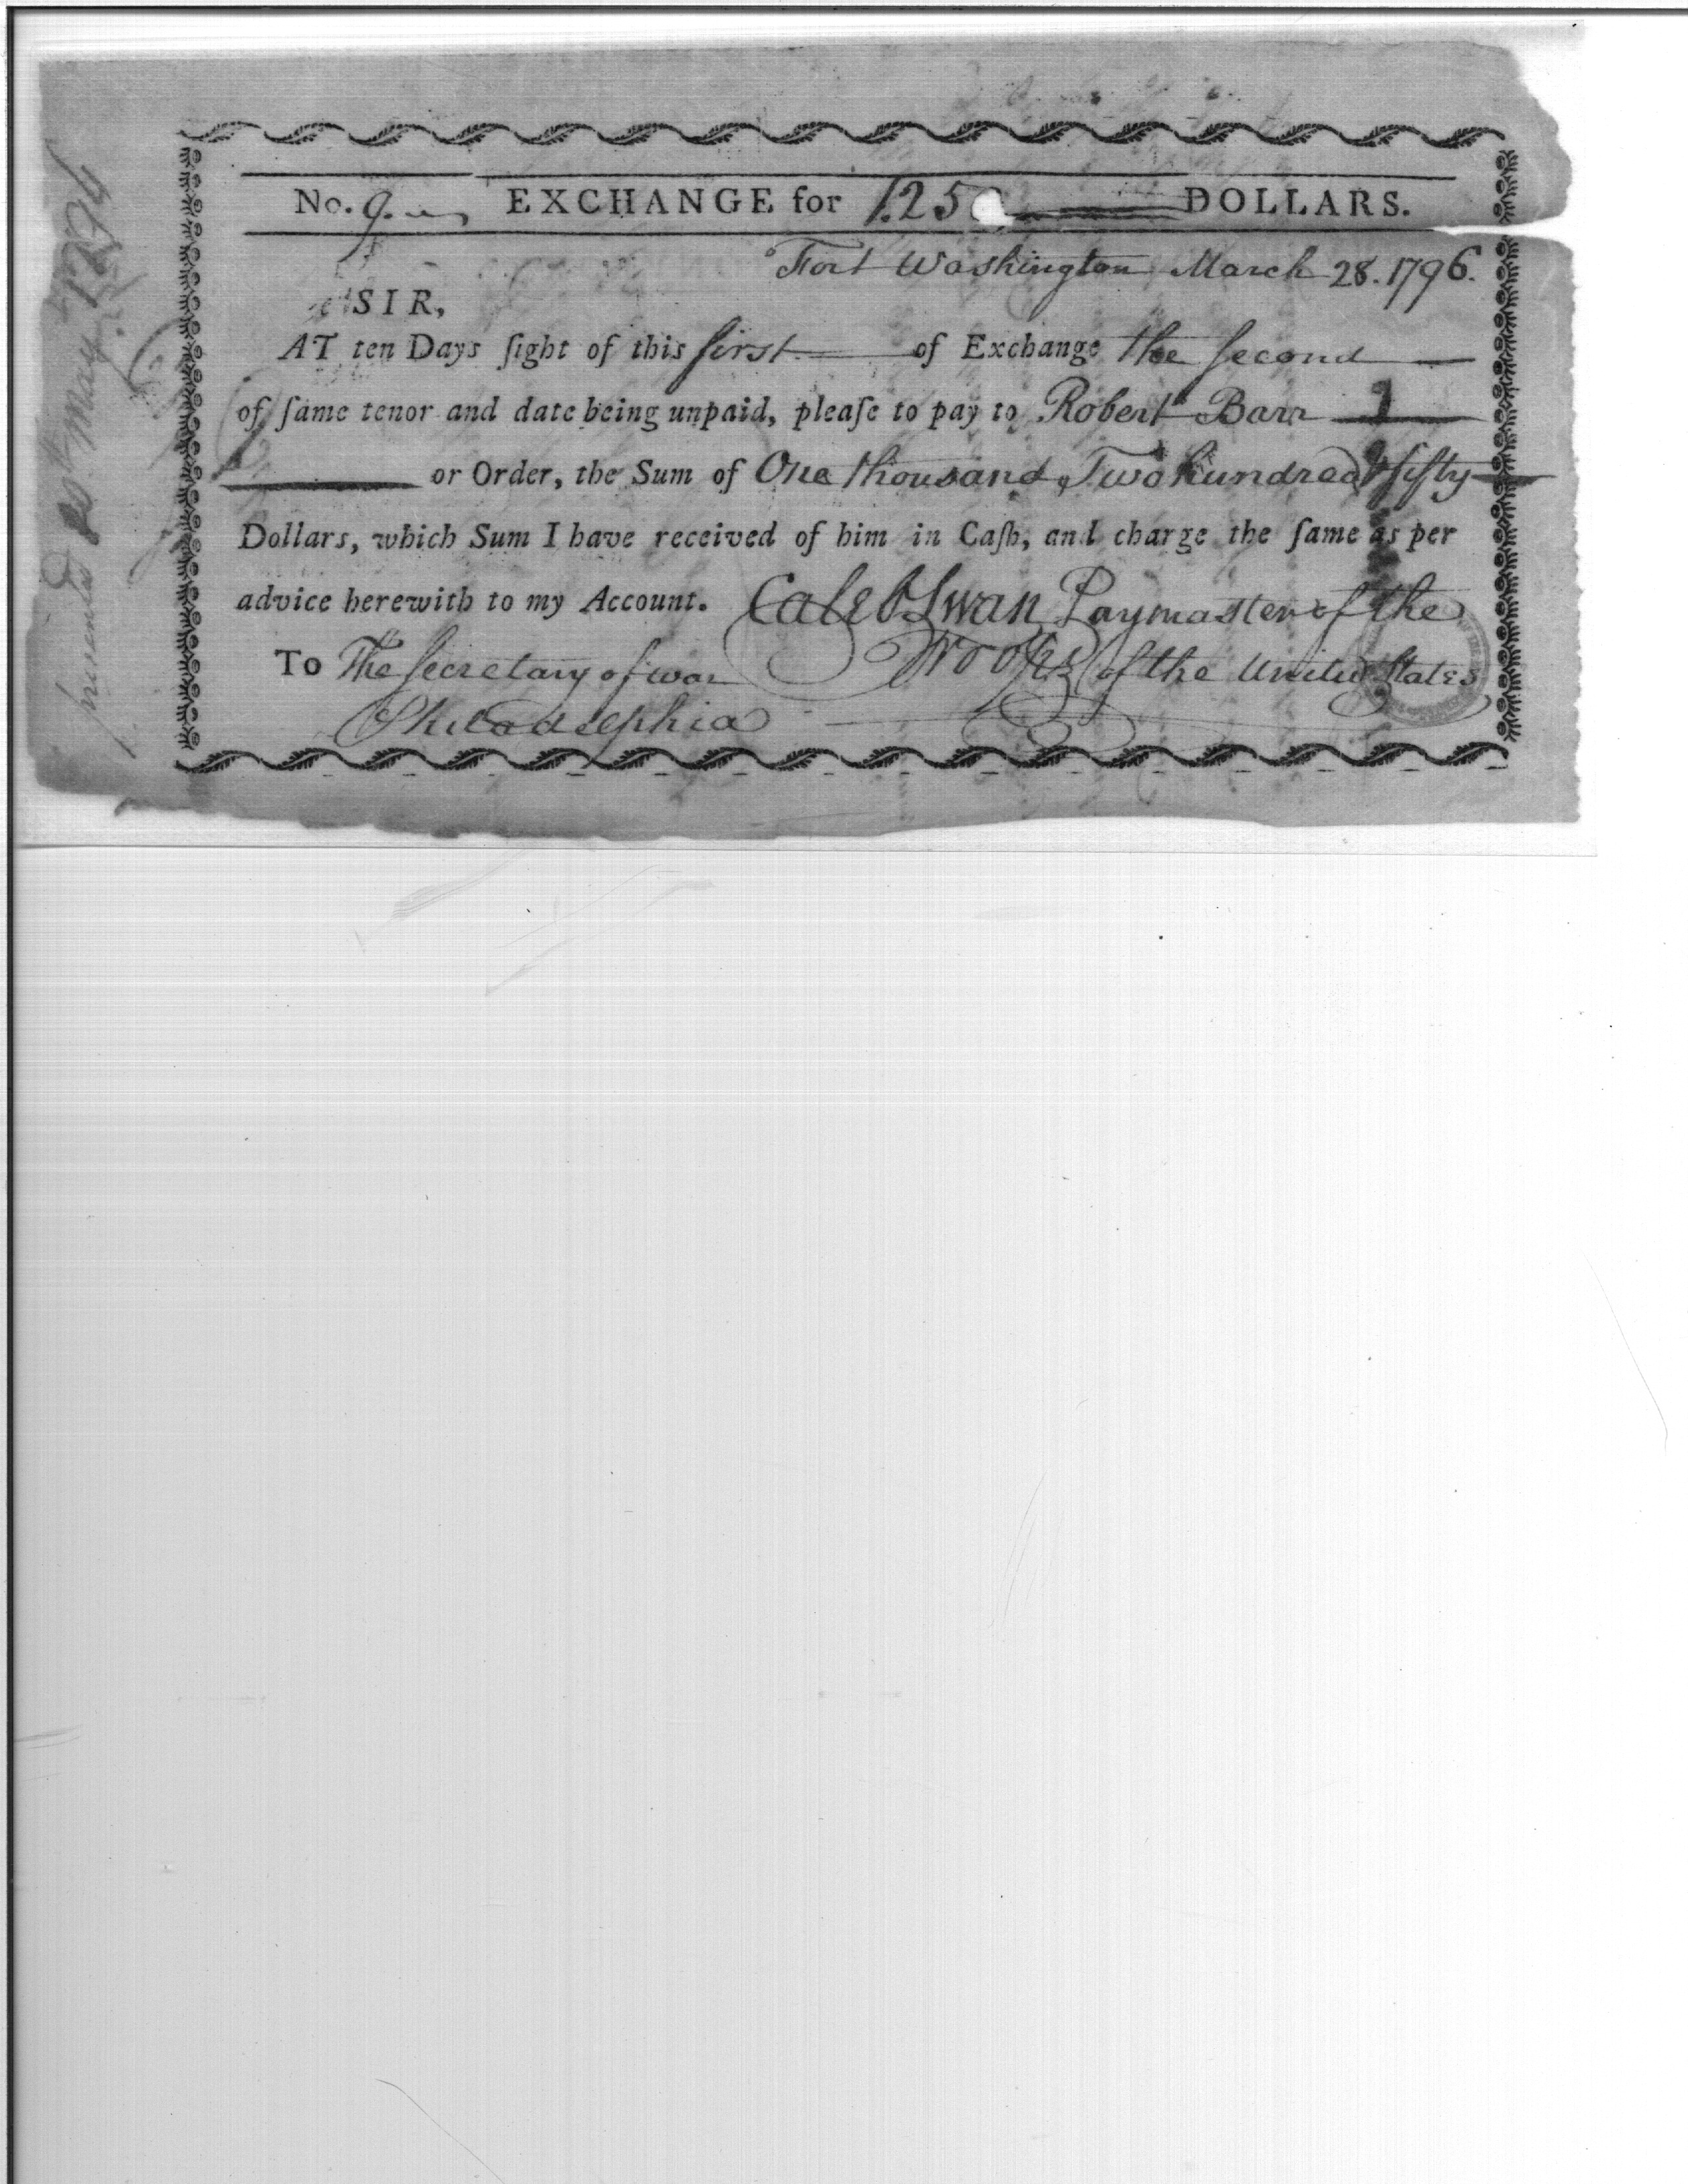 No. 9. EXCHANGE for 1.250 DOLLARS.
Fort Washington March 28. 1796.
SIR,
AT ten Days ſight of this first of Exchange the second
of ſame tenor and date being unpaid, pleaſe to pay to Robert Barr
or Order, the Sum of One thousand Two hundred & fifty
Dollars, which Sum I have received of him in Caſh, and charge the ſame as per
advice herewith to my Account. Caleb Swan Paymaster of the
To The Secretary of war Troops of the United States
Philadelphia
presented May